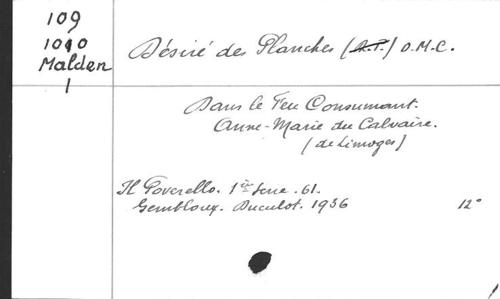 109
1010
Malden
1
Désiré des Planches (R.P.) O.M.C.
Dans le Feu Consumant.
Anne-Marie du Calvaire.
(de Limoges)
Il Poverello. 1ère serie. 61.
Gembloux. Duculot. 1936 12°